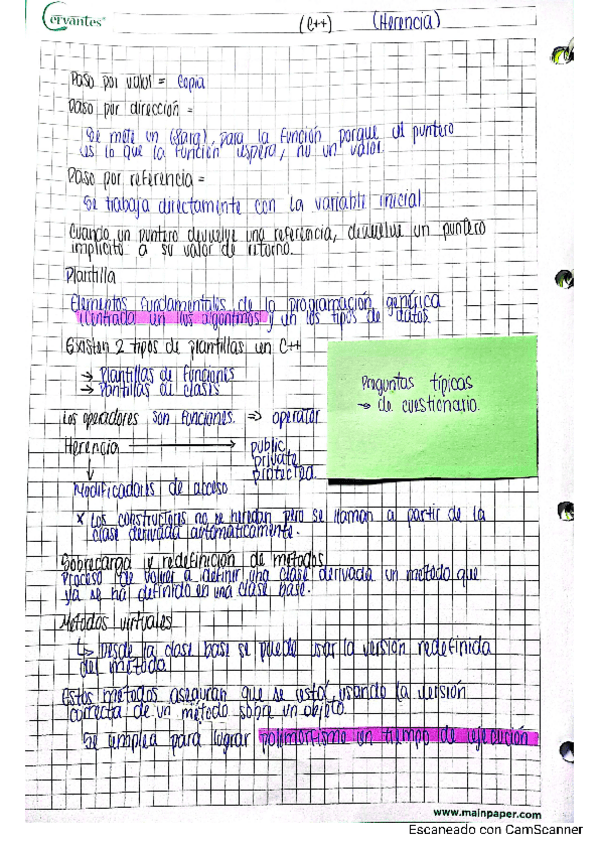 Cervantes
(C++) (Herencia)
Paso por valor = Copia
Paso por dirección =
Se mete un (&arg), para la función porque al puntero
es lo que la función espera, no un valor.
Paso por referencia =
Se trabaja directamente con la variable inicial
Cuando un puntero devuelve una referencia, devuelve un puntero
implícito a su valor de retorno.
Plantilla
Elementos fundamentales de la programación genérica
(Centrada en los algoritmos) y en los tipos de datos.
Existen 2 tipos de plantillas en C++
→ Plantillas de funciones
→ Plantillas de clases
Preguntas típicas
→ de cuestionario.
Los operadores son funciones. ⇒ operator
Herencia → public
private
protected.
↓
Modificadores de acceso
x Los constructores no se heredan pero se llaman a partir de la
clase derivada automáticamente.
Sobrecarga y redefinición de métodos
Proceso de volver a definir una clase derivada un método que
ya se ha definido en una clase base.
Métodos virtuales
↳ Desde la clase base se puede usar la versión redefinida
del método
Estos métodos aseguran que se está usando la versión
correcta de un método sobre un objeto
Se emplea para lograr polimorfismo en tiempo de ejecución
www.mainpaper.com
Escaneado con CamScanner